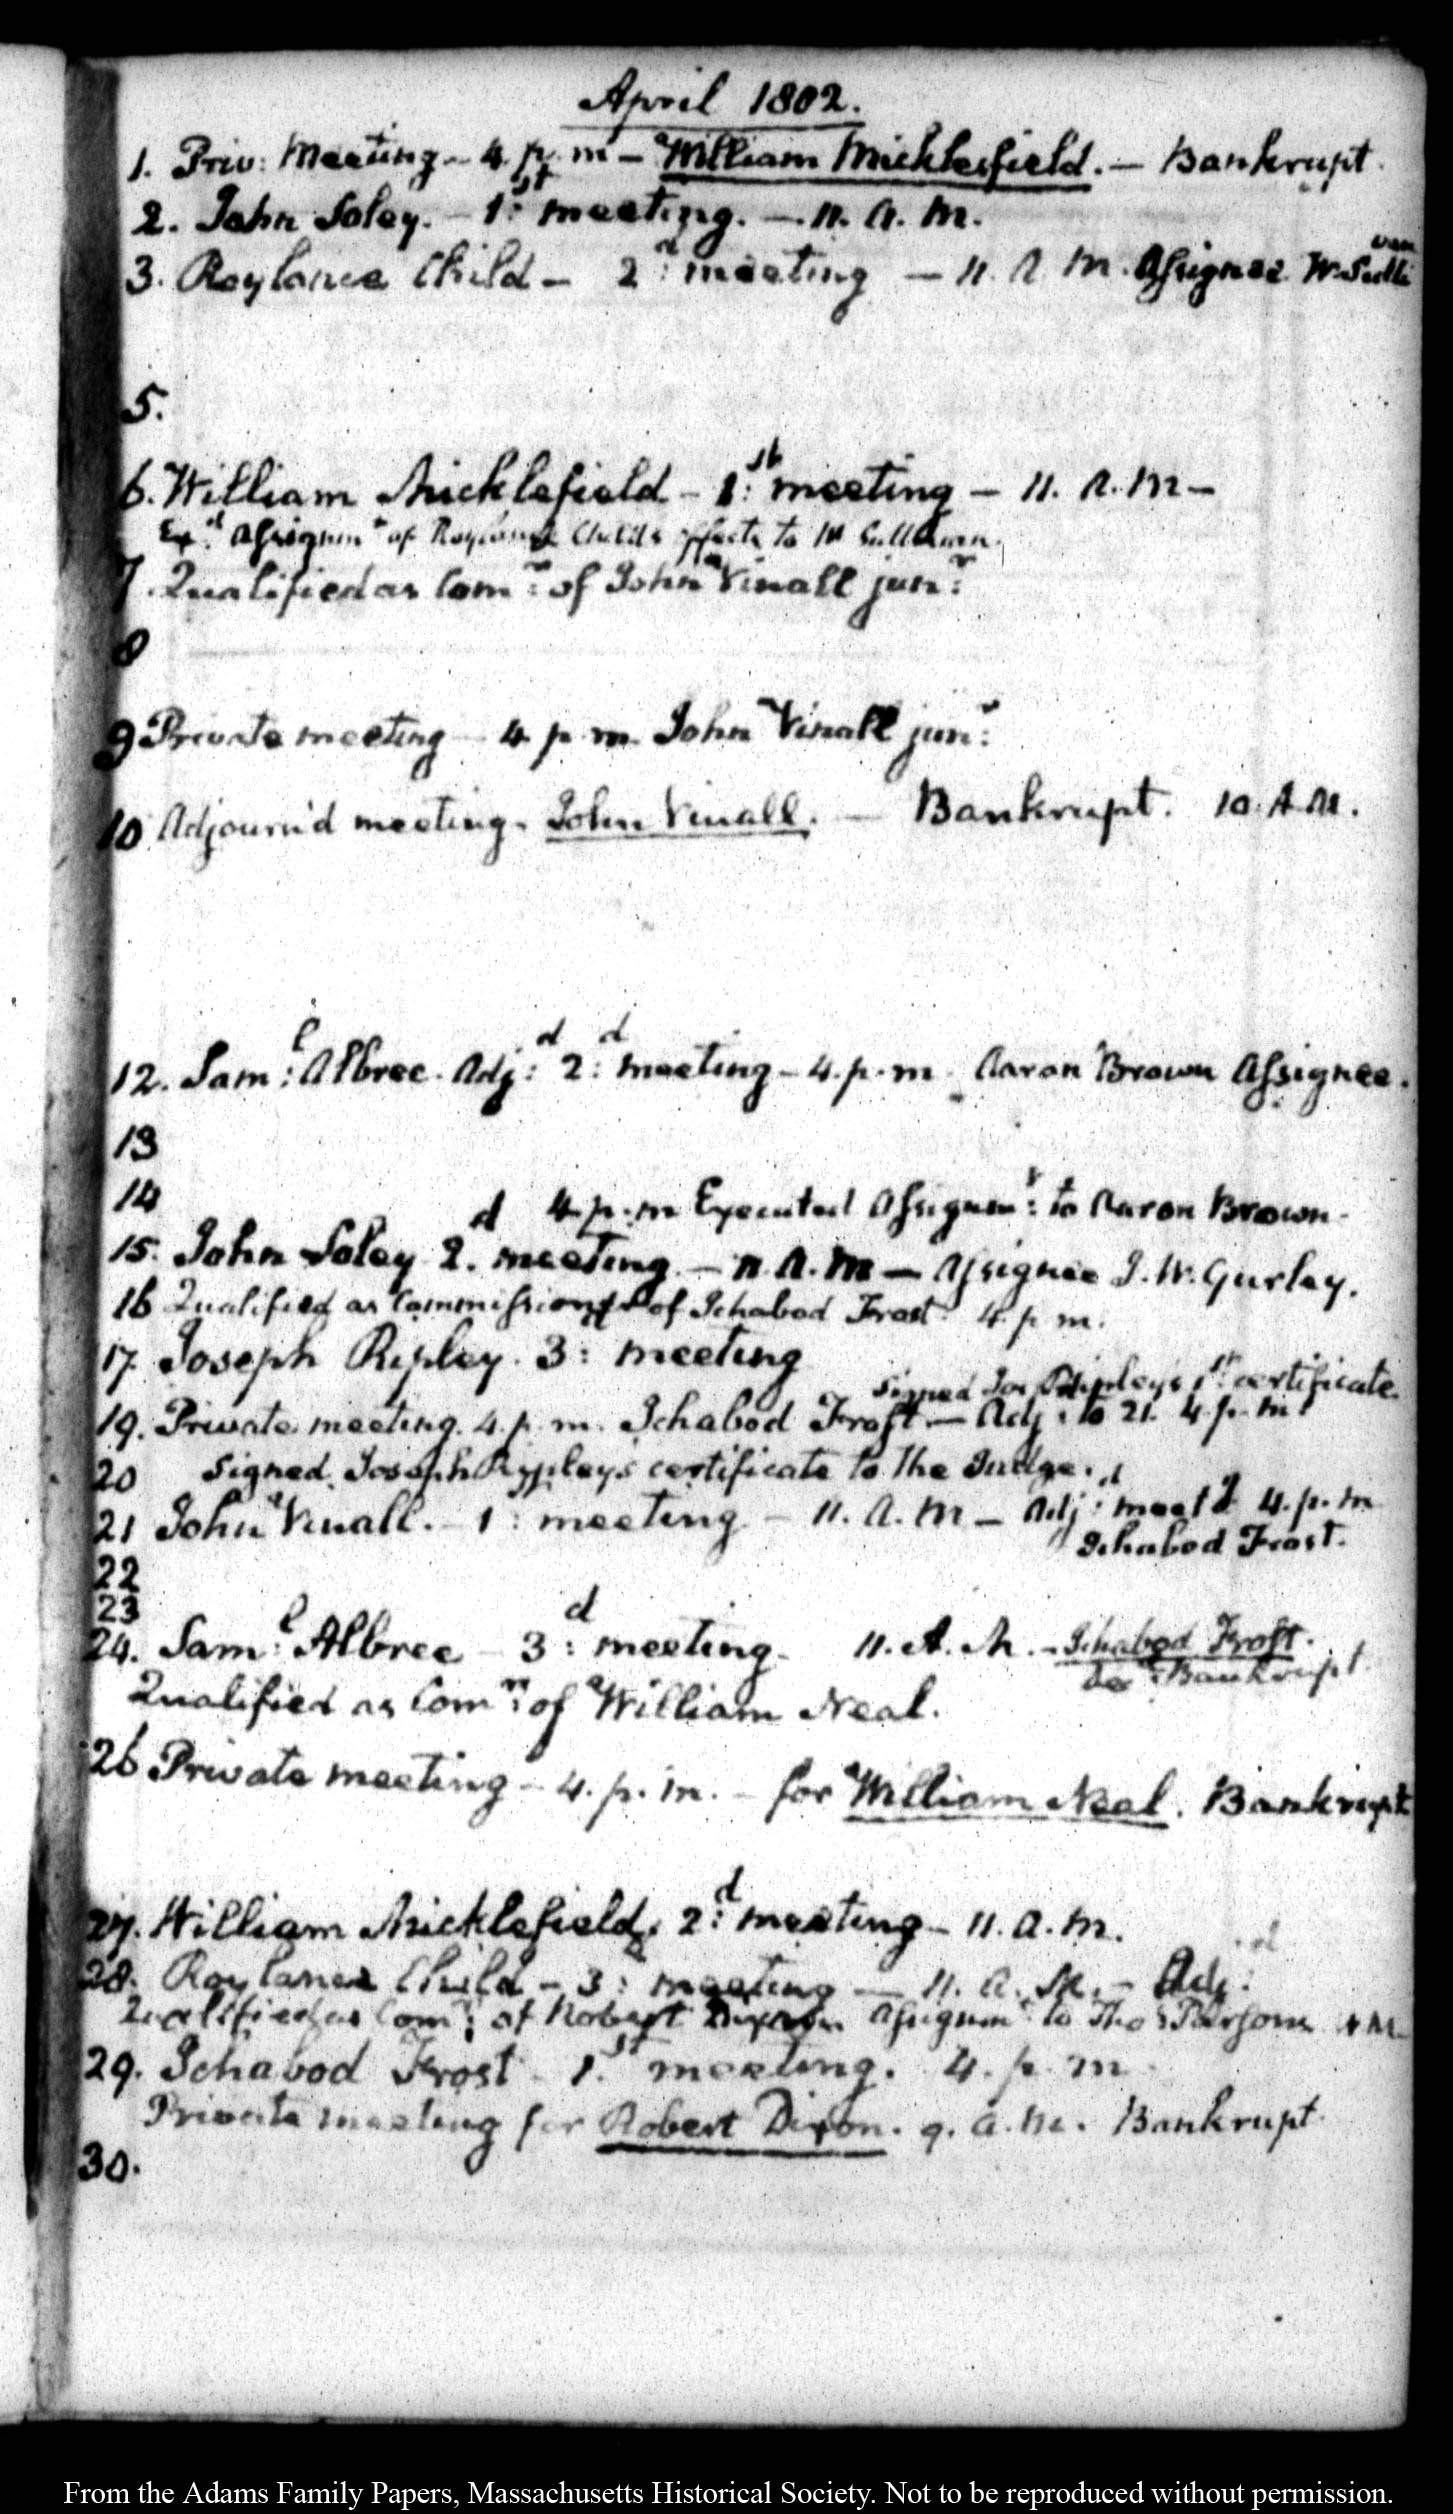 April 1802.
1. Priv: Meeting - 4. p. m - William Micklefield. - Bankrupt.
2. John Soley. - 1st: meeting. - 11. A. M.
3. Roylance Child - 2d: meeting - 11. A M. Assignee W. Sullivan
5.
6. William Micklefield - 1st: meeting - 11. A. M -
Exd: Assignmt of Roylance Child's effects to W Sullivan.
7. Qualified as Comr: of John Vinall junr:
8
9 Private meeting - 4. p. m. John Vinall junr:
10 Adjourn'd meeting. John Vinall. - Bankrupt. 10. A. M.
12. Saml: Albree. Adjd: 2d: meeting - 4. p. m. Aaron Brown Assignee.
13
14
4. p. m Executed Assignmt: to Aaron Brown.
15. John Soley 2d. meeting. - 11. A. M - Assignee J. W. Gurley.
16 Qualified as Commissioner of Ichabod Frost 4. p. m.
17. Joseph Ripley. 3: meeting
Signed Jos Ripleys 1st: certificate.
19. Private meeting. 4. p. m. Ichabod Frost. - Adj: to 21. 4. p. m.
20 Signed Joseph Ripleys certificate to the Judge.
21 John Vinall. - 1: meeting - 11. A. M - Adjd: meetg 4. p. m
Ichabod Frost.
22
23
24. Saml: Albree - 3d: meeting - 11. A. M. - Ichabod Frost.
Bankrupt.
Qualified as Comr: of William Neal.
26 Private meeting - 4. p. m. - for William Neal. Bankrupt
27. William Micklefield. 2d: meeting - 11. A. M.
28. Roylance Child - 3: meeting - 11. A. M. - Adjd:
Qualified as Comr: of Robert Dixon Assignmt to Thos Parsons
29. Ichabod Frost 1st. meeting. 4. p. m
Private meeting for Robert Dixon. 9. A. M. Bankrupt.
30.
From the Adams Family Papers, Massachusetts Historical Society. Not to be reproduced without permission.